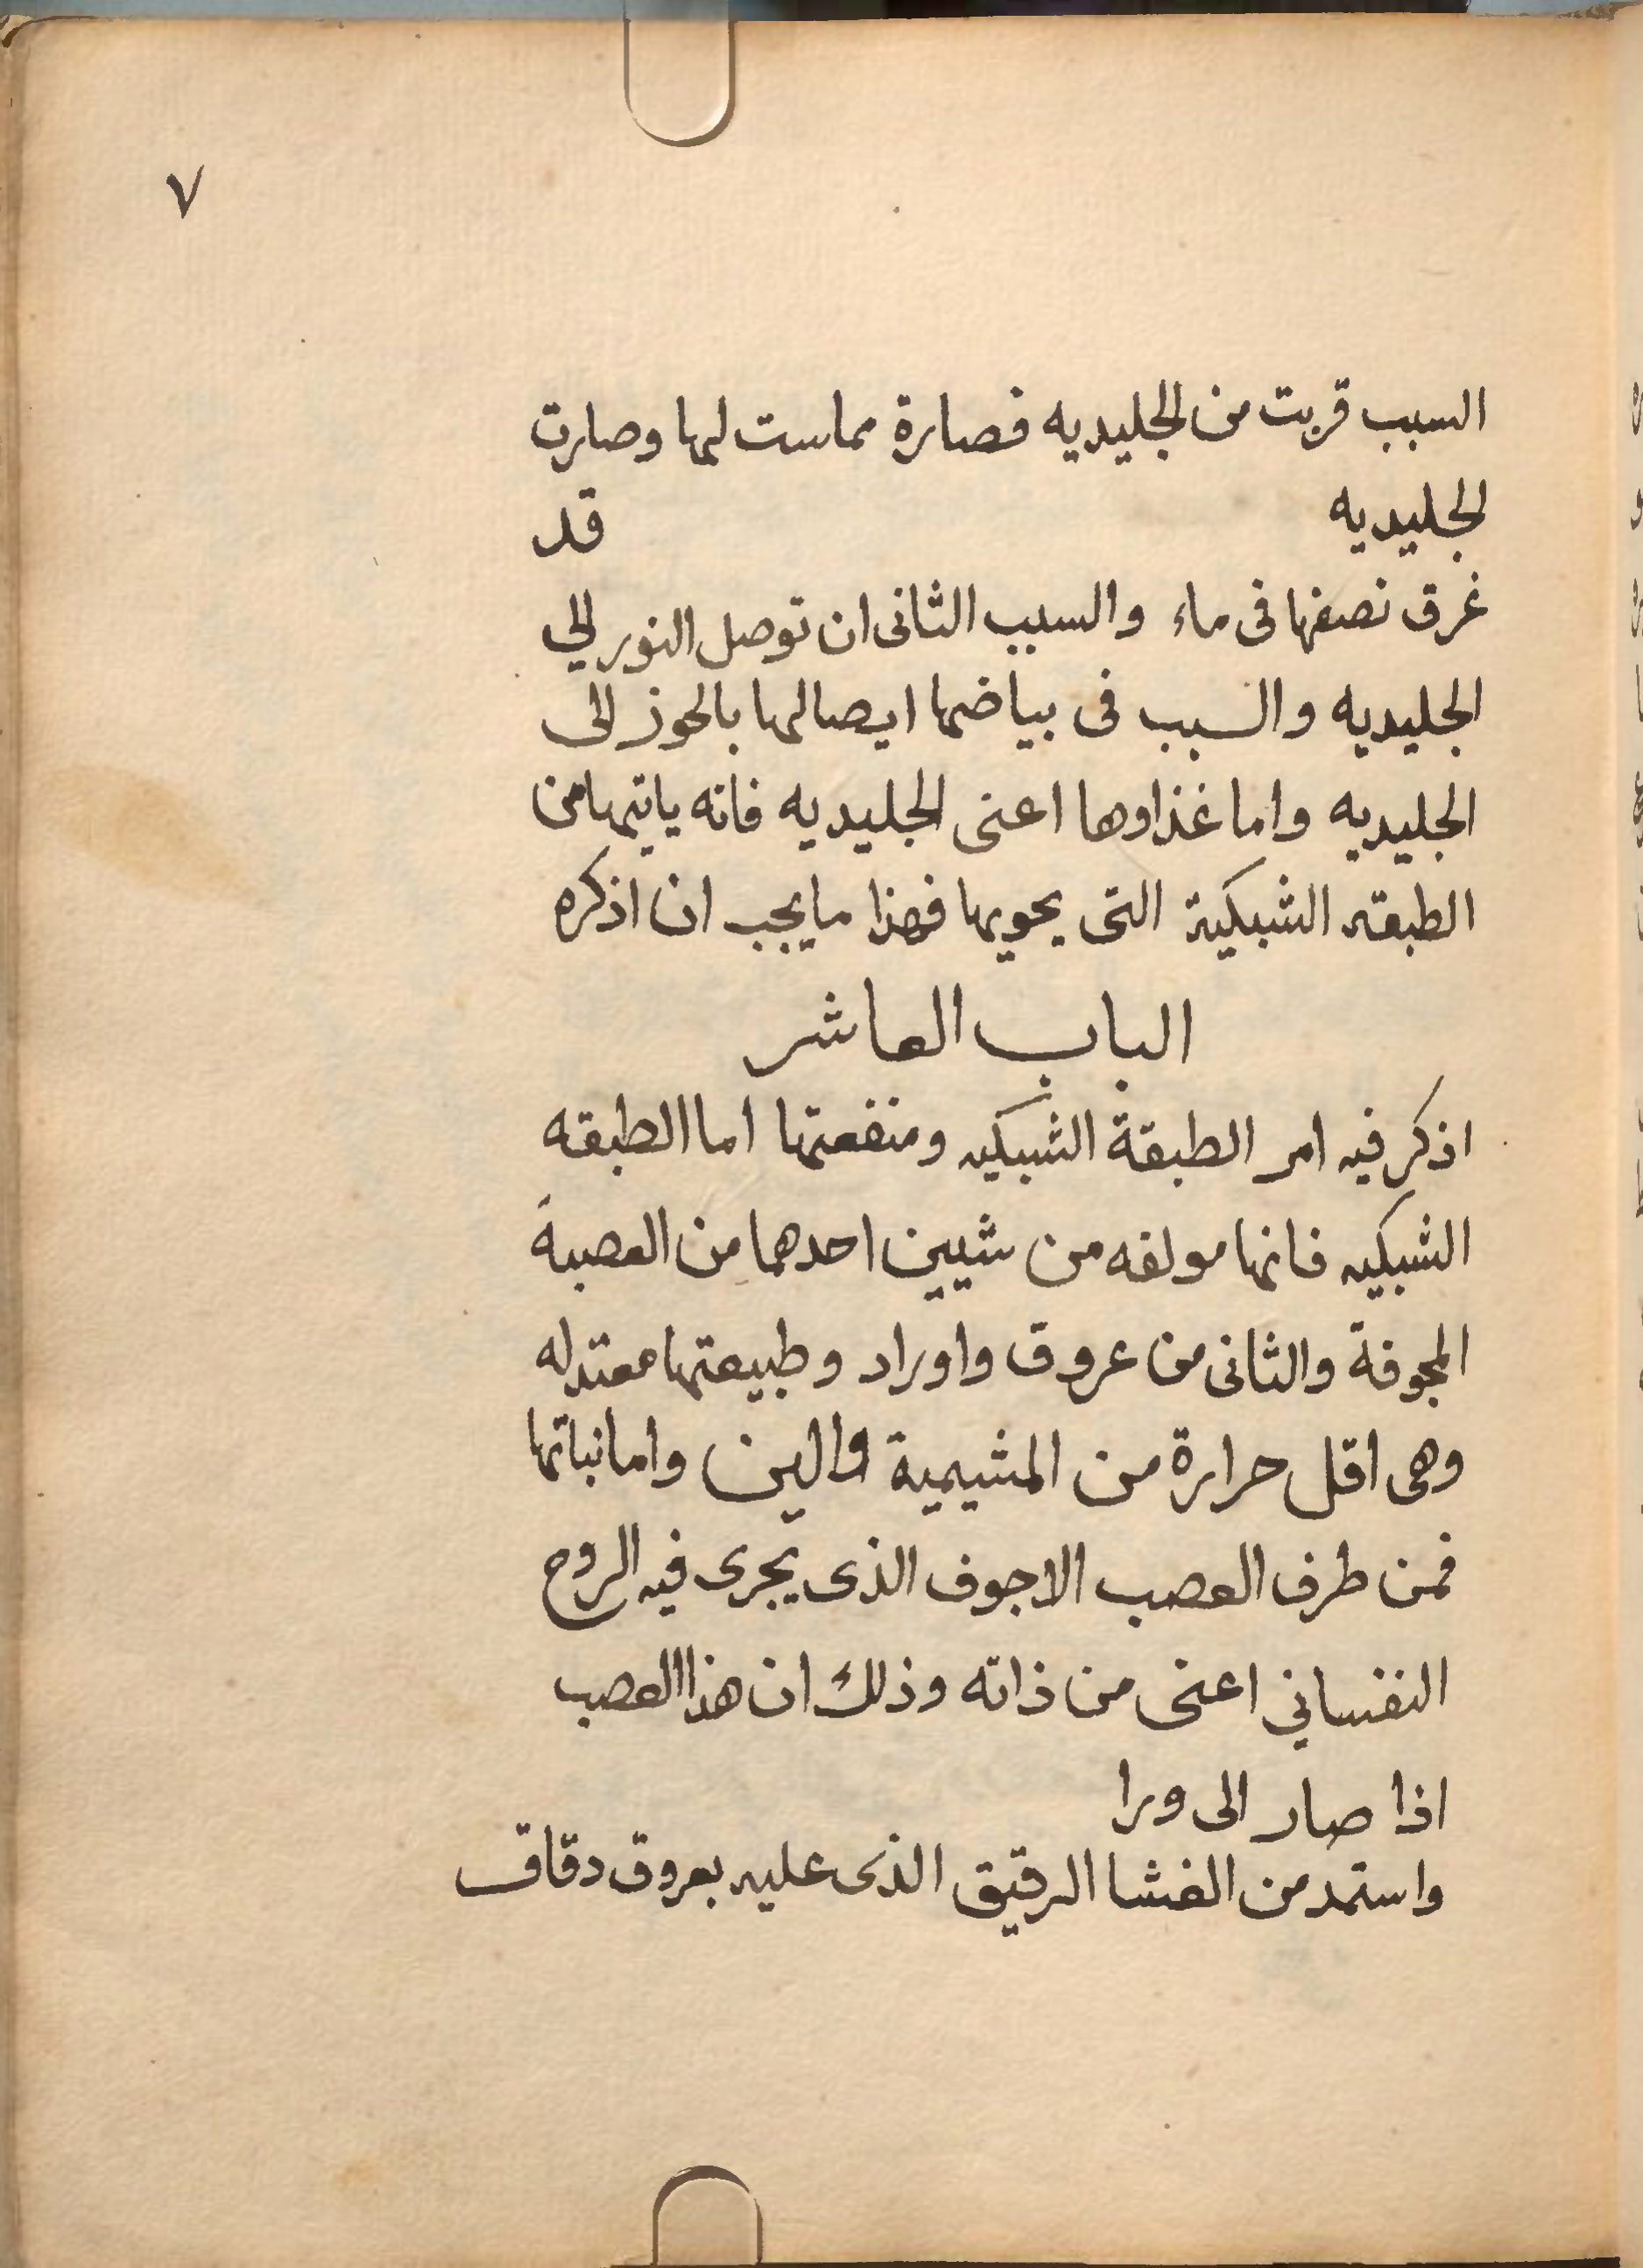 ٧
السبب قربت من الجليديه فصارة مماست لها وصارت
الجليديه قد
غرق نصفها فى ماء والسبب الثانى ان توصل النور الي
الجليديه والسبب فى بياضها ايصالها بالحوز الى
الجليديه واما غذاوها اعنى الجليديه فانه ياتيها من
الطبقه الشبكية التى يحويها فهذا ما يجب ان اذكره
الباب العاشر
اذكر فيه امر الطبقة الشبكيه ومنفعتها اما الطبقه
الشبكيه فانها مولفه من شيين احدهما من العصبة
المجوفة والثانى من عروق واوراد وطبيعتها معتدله
وهى اقل حرارة من المشيمية والين واما نباتها
فمن طرف العصب الاجوف الذى يجرى فيه الروح
النفساني اعنى من ذاته وذلك ان هذا العصب
اذا صار الى ورا
واستمد من الغشا الرقيق الذى عليه بعروق دقاق